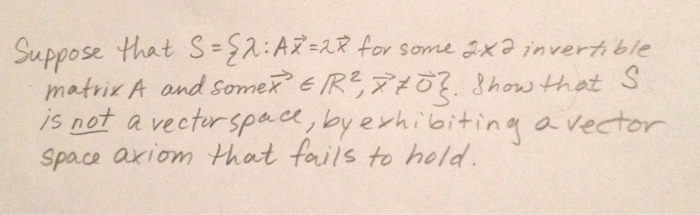 Suppose that S={λ: Ax⃗=λx⃗ for some 2x2 invertible
matrix A and some x⃗ ∈ ℝ², x⃗≠0⃗}. Show that S
is not a vector space, by exhibiting a vector
space axiom that fails to hold.